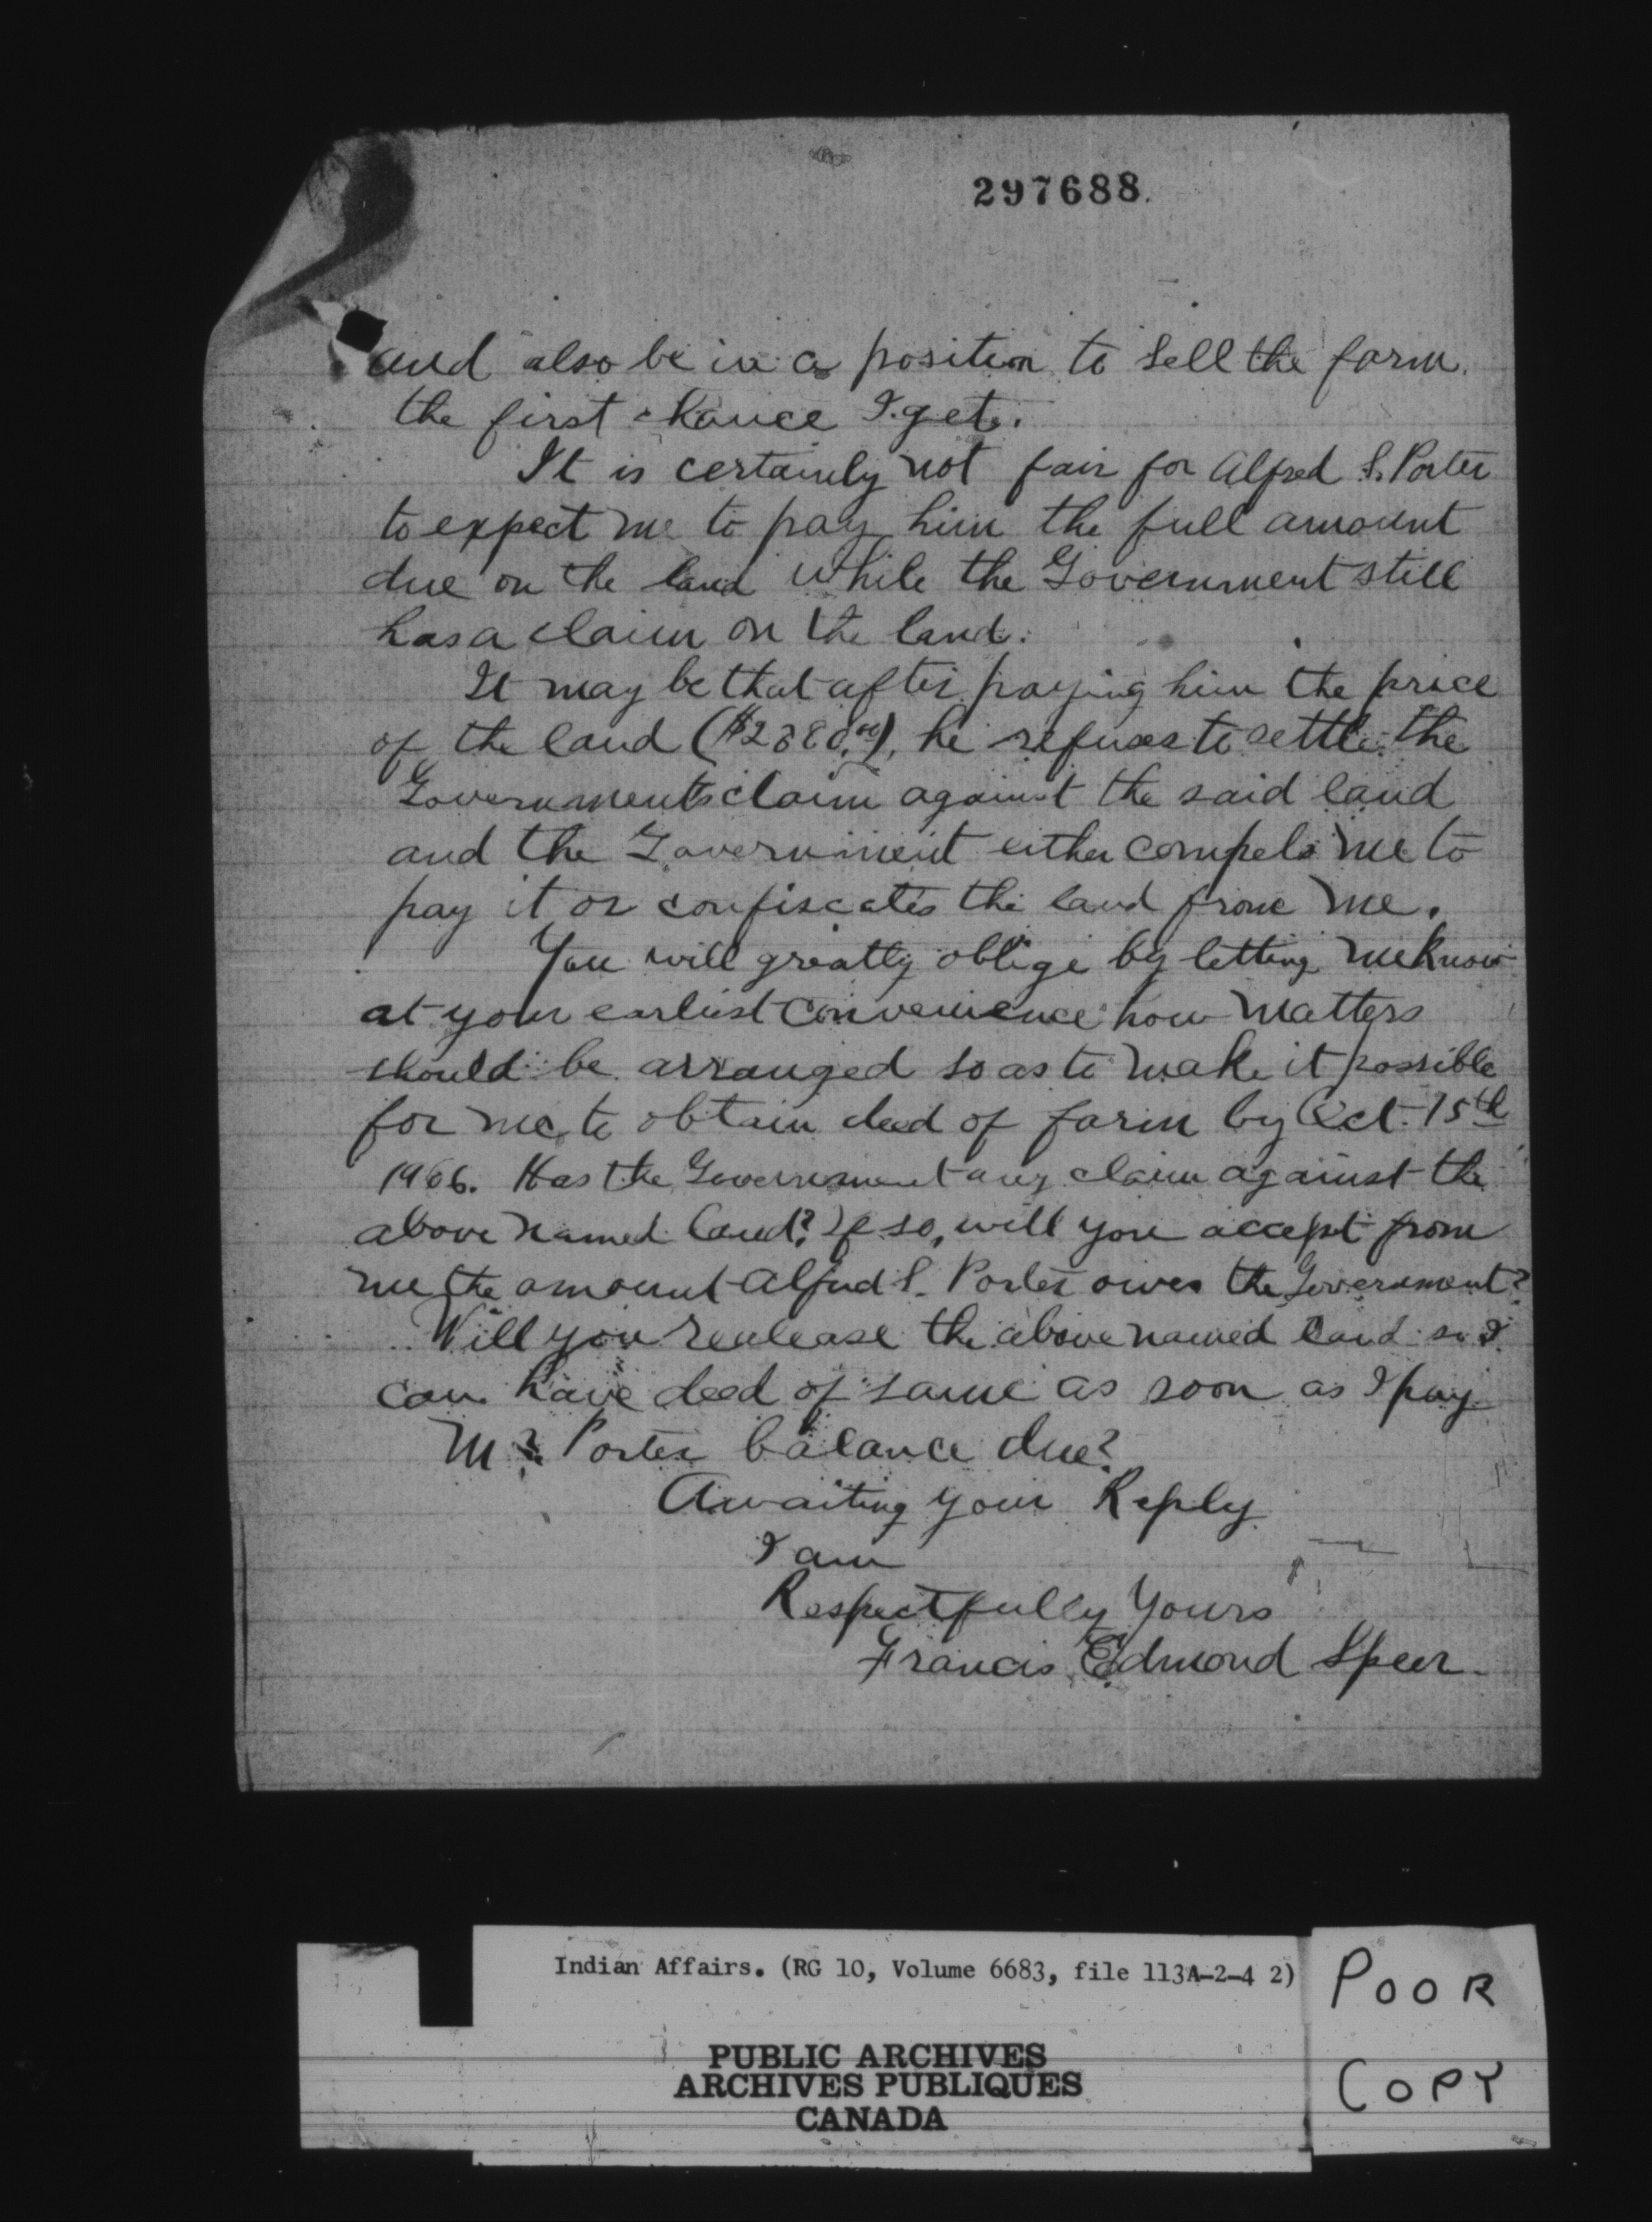 297688.
and also be in a position to sell the farm.
the first chance I get.
It is certainly not fair for Alfred S. Porter
to expect me to pay him the full amount
due on the land while the Government still
has a claim on the land.
It may be that after paying him the price
of the land he refuses to settle the
Governments claim against the said land
and the Government either compels me to
pay it or confiscates the land from me.
You will greatly oblige by letting me know
at your earliest convenience how matters
should be arranged so as to make it possible
for me to obtain deed of farm by Oct. 15th
1906. Has the Government any claim against the
above named land? If so, will you accept from
me the amount Alfred S. Porter owes the Government?
Will you realease the above named land so I
can have deed of same as soon as I pay
Mr. Porter balance due?
Awaiting your Reply
I am
Respectfully Yours
Francis Edmond Speer
Indian Affairs. (RG 10, Volume 6683, file 113A-2-4 2)
PUBLIC ARCHIVES
ARCHIVES PUBLIQUES
CANADA
POOR
COPY